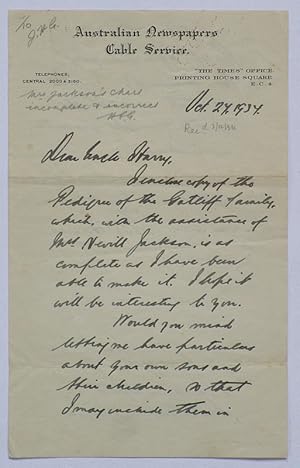 To
J.H.G.
Australian Newspapers
Cable Service.
TELEPHONES,
CENTRAL 2000 & 3160.
"THE TIMES" OFFICE
PRINTING HOUSE SQUARE
E.C.4
Mrs Jackson's Chart
incomplete & incorrect
Oct. 24, 1934.
Rec'd
Dear Uncle Harry,
I enclose copy of the
Pedigree of the Gatliff family,
which, with the assistance of
Mrs Nevill Jackson, is as
complete as I have been
able to make it. I hope it
will be interesting to you.
Would you mind
letting me have particulars
about your own sons and
their children, so that
I may include them in